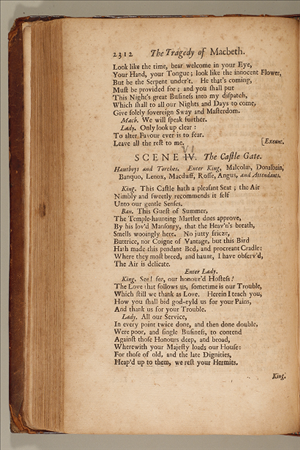 2312 The Tragedy of Macbeth.
Look like the time, bear welcome in your Eye,
Your Hand, your Tongue; look like the innocent Flower,
But be the Serpent under't. He that's coming,
Must be provided for; and you shall put
This Night's great Business into my dispatch,
Which shall to all our Nights and Days to come,
Give solely sovereign Sway and Masterdom.
Mach. We will speak further.
Lady. Only look up clear:
To alter Favour ever is to fear.
Leave all the rest to me. [Exeunt.
SCENE IV. The Castle Gate.
Hautboys and Torches. Enter King, Malcolm, Donalbain,
Banquo, Lenox, Macduff, Rosse, Angus, and Attendants.
King. This Castle hath a pleasant Seat; the Air
Nimbly and sweetly recommends it self
Unto our gentle Senses.
Ban. This Guest of Summer,
The Temple-haunting Martlet does approve,
By his lov'd Mansonry, that the Heav'n's breath,
Smells wooingly here. No jutty frieze,
Buttrice, nor Coigne of Vantage, but this Bird
Hath made this pendant Bed, and procreant Cradle:
Where they most breed, and haunt, I have observ'd,
The Air is delicate.
Enter Lady.
King. See! see, our honour'd Hostess!
The Love that follows us, sometime is our Trouble,
Which still we thank as Love. Herein I teach you,
How you shall bid god-eyld us for your Pains,
And thank us for your Trouble.
Lady. All our Service,
In every point twice done, and then done double,
Were poor, and single Business, to contend
Against those Honours deep, and broad,
Wherewith your Majesty loads our House:
For those of old, and the late Dignities,
Heap'd up to them, we rest your Hermits.
King.